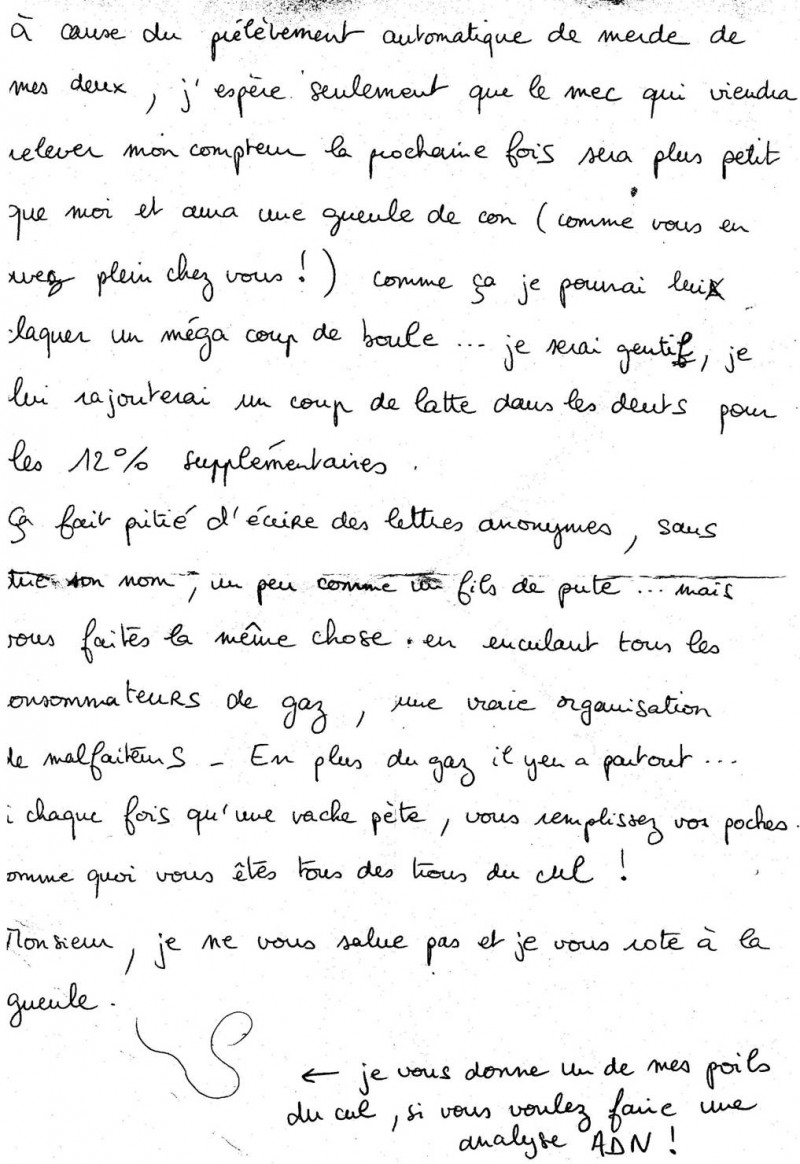 à cause du prélèvement automatique de merde de
mes deux, j'espère seulement que le mec qui viendra
relever mon compteur la prochaine fois sera plus petit
que moi et aura une gueule de con (comme vous en
avez plein chez vous !) comme ça je pourrai lui
claquer un méga coup de boule ... je serai gentil, je
lui rajouterai un coup de latte dans les dents pour
les 12% supplémentaires.
Ça fait pitié d'écrire des lettres anonymes, sans
son nom, un peu comme un fils de pute ... mais
vous faites la même chose . en enculant tous les
onsommateurs de gaz, une vraie organisation
de malfaiteurs - En plus du gaz il y en a partout ...
à chaque fois qu'une vache pète, vous remplissez vos poches.
omme quoi vous êtes tous des trous du cul !
Monsieur, je ne vous salue pas et je vous rote à la
gueule.
← je vous donne un de mes poils
du cul, si vous voulez faire une
analyse ADN !